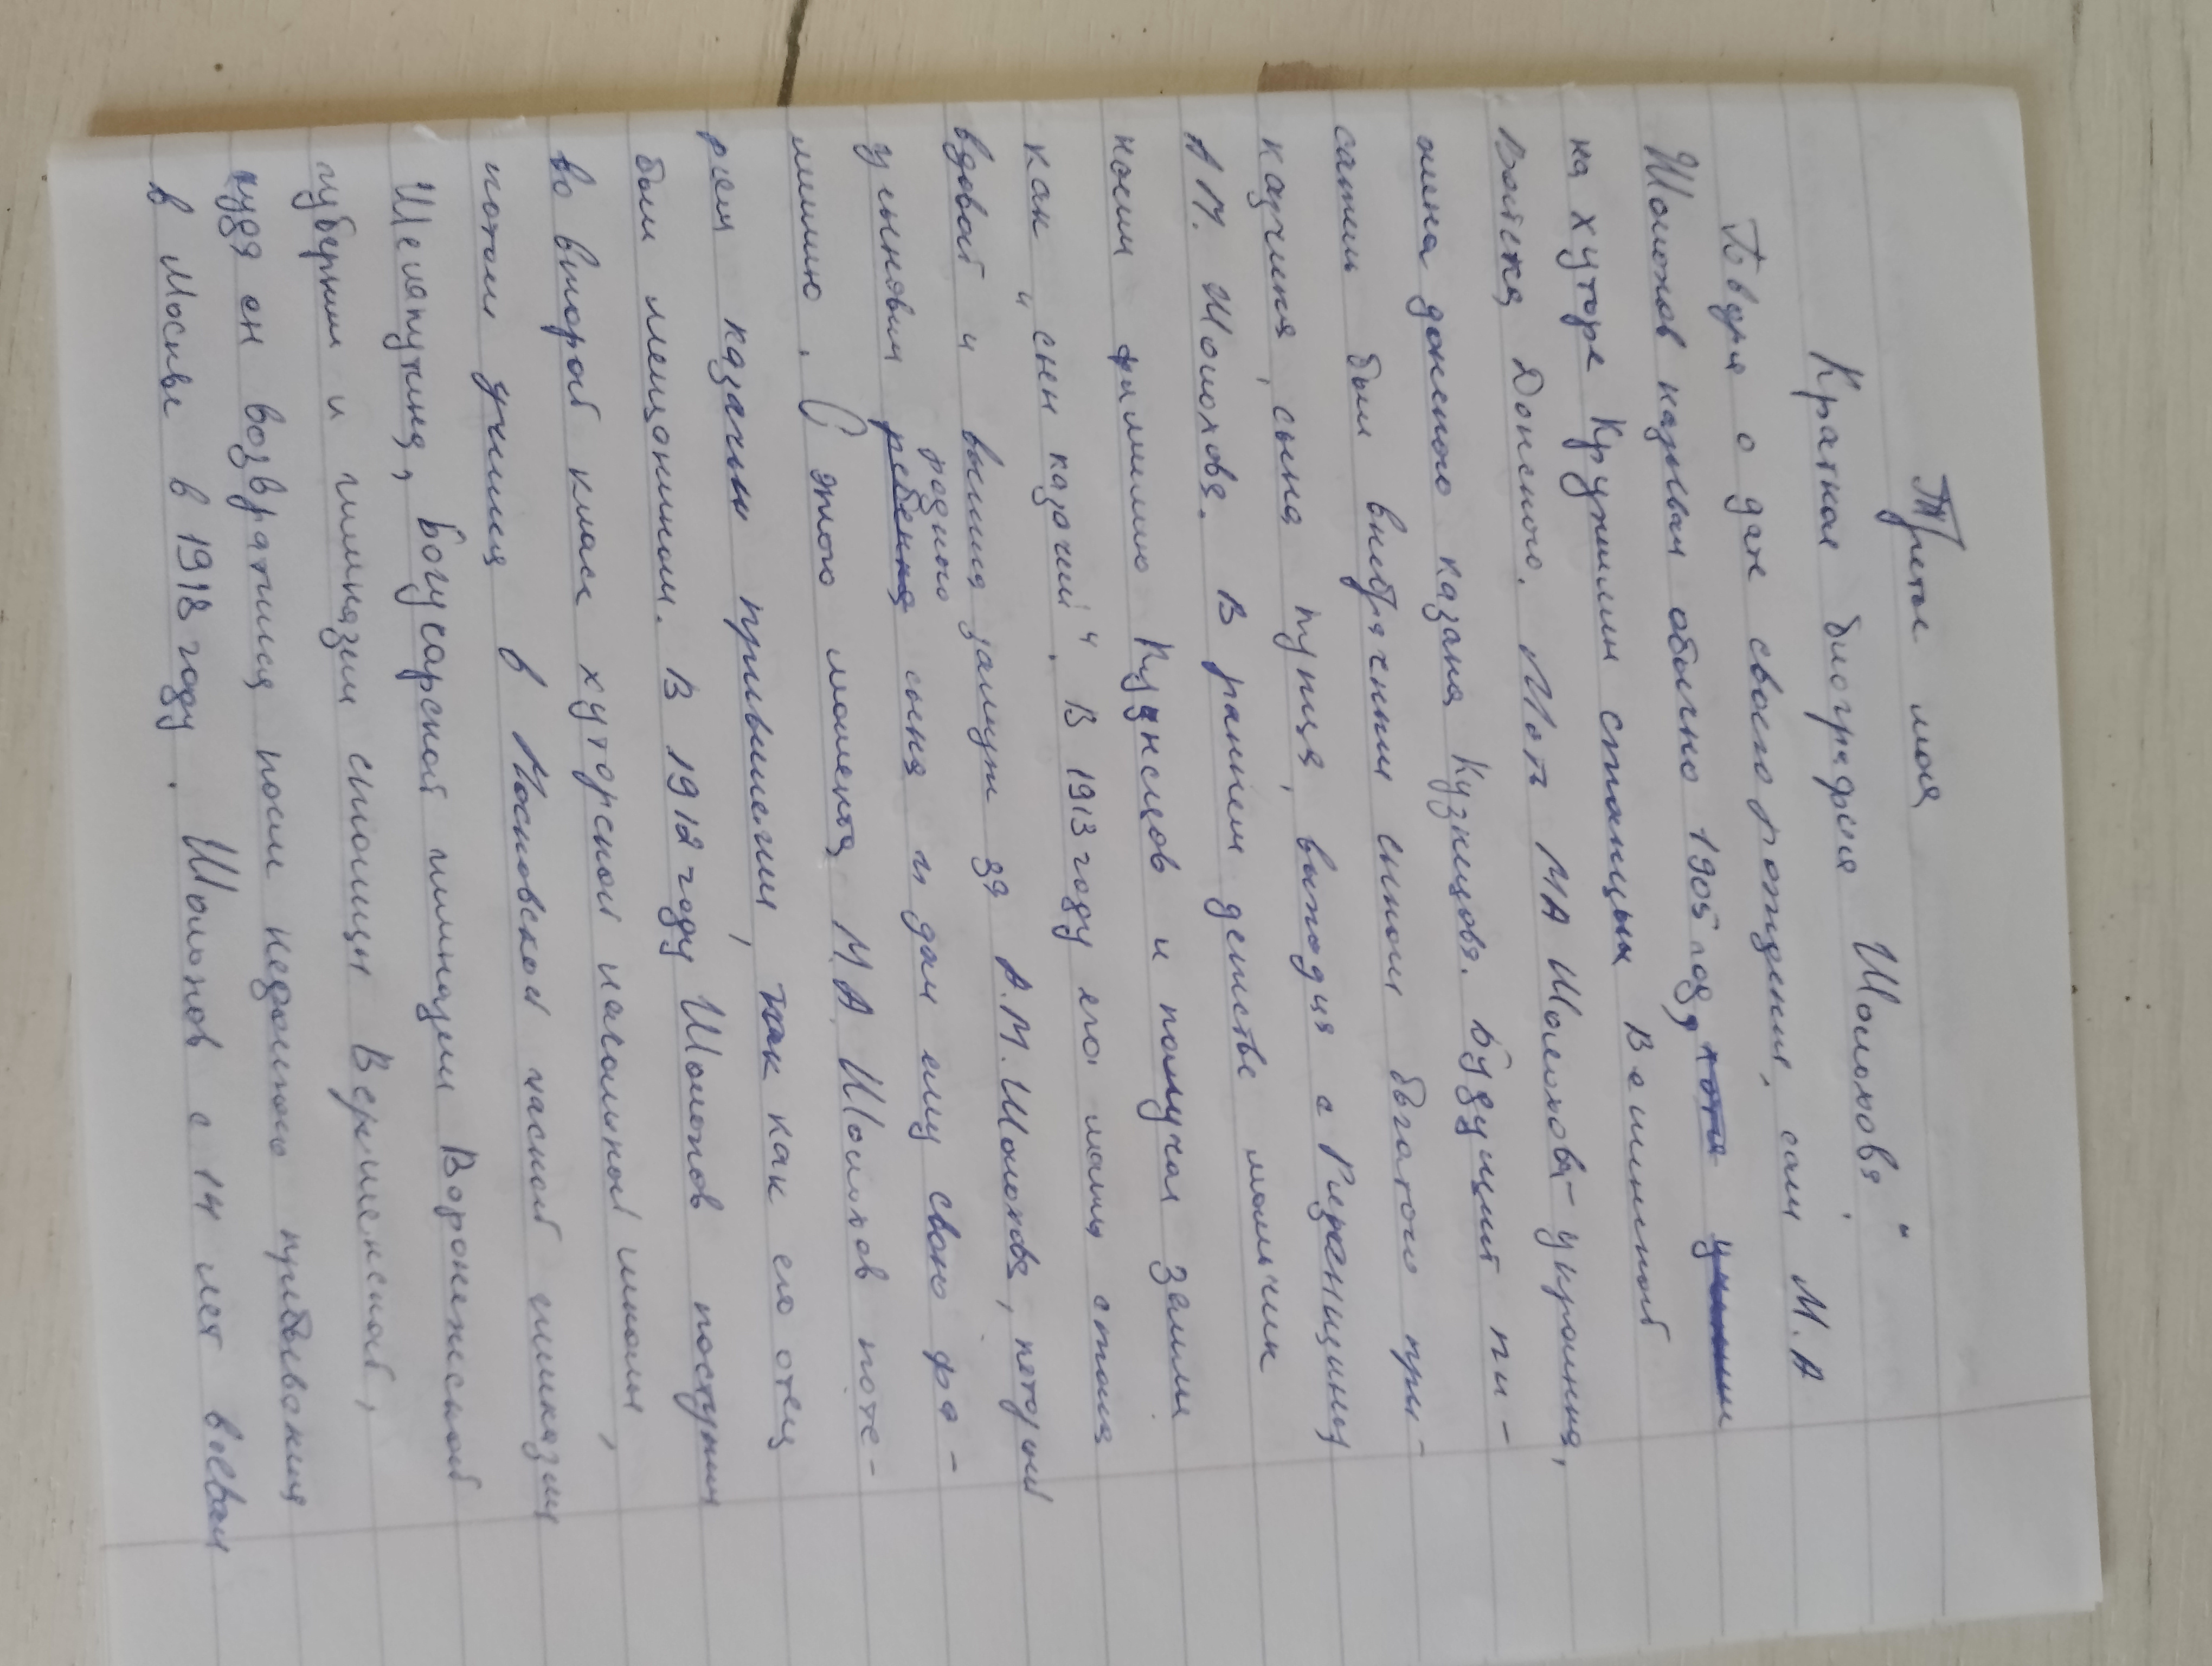 Третье мая
Краткая биография Шолохова"
Говоря о дате своего рождения, сам М.А
Шолохов называл обычно 1905 год, хотя
на хуторе Кружилин станицы Вешенской
Войска Донского. Мать МА Шолохова - украинка,
жена донского казака Кузнецова. Будущий пи-
сатель был внебрачным сыном богатого при-
казчика, сына купца, выходца с Рязанщины
А М. Шолохова. В раннем детстве мальчик
носил фамилию Кузнецов и получал земли
как "сын казачий". В 1913 году его мать стала
вдовой и вышла замуж за А.М. Шолохова, который
родного
усыновил ребенка сына и дал ему свою фа-
милию. С этого момента М А Шолохов поте-
рял казачьи привилегии, так как его отец
был мещанином. В 1912 году Шолохов поступил
во второй класс хуторской начальной школы,
потом учился в Московской частной гимназии
Шелапутина, Богучарской гимназии Воронежской
губернии и гимназии станицы Вершенской,
куда он возвратился после недолгого пребывания
в Москве в 1918 году. Шолохов с 14 лет воевал